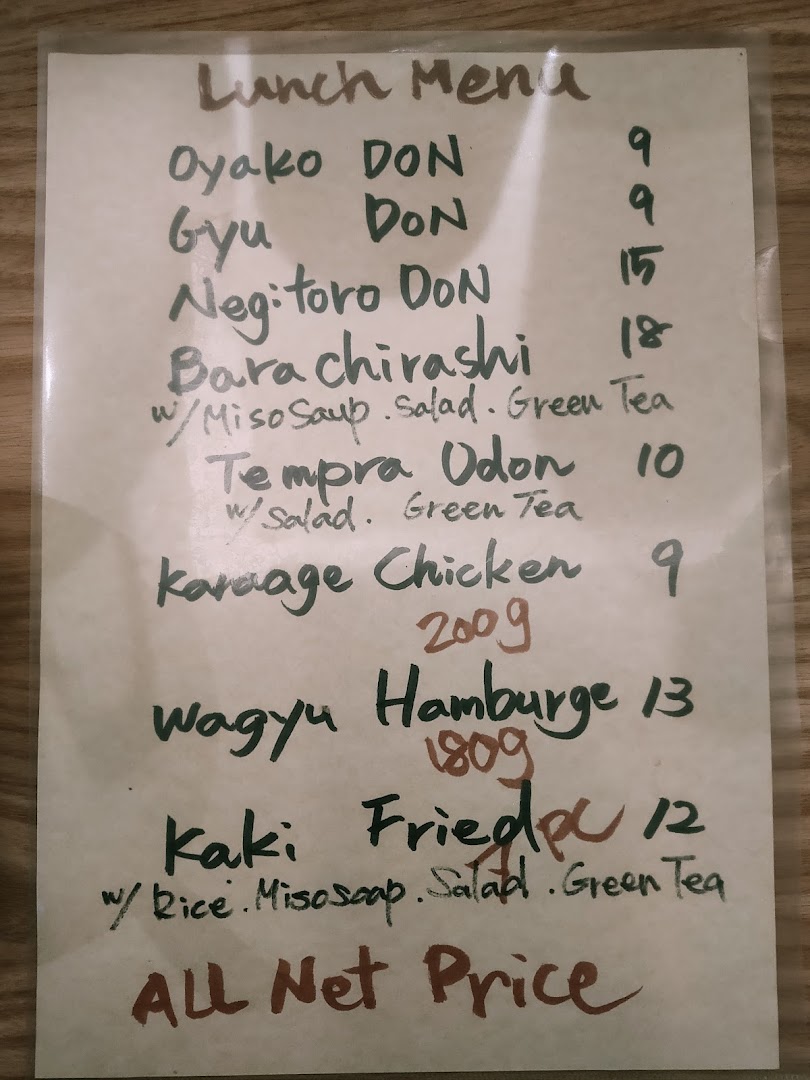 Lunch Menu
Oyako DON 9
Gyu DON 9
Negitoro DON 15
Bara chirashi 18
w/Miso Saup . Salad . Green Tea
Tempra Udon 10
w/ Salad . Green Tea
Karaage Chicken 9
200g
Wagyu Hamburge 13
180g
Kaki Fried 12
7pc
w/ Rice . Miso soap . Salad . Green Tea
ALL Net Price